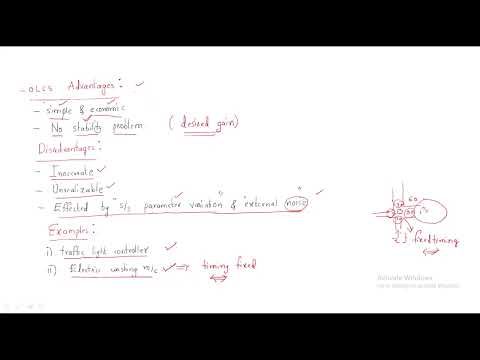 - OLCS Advantages :
- simple & economic
- No stability problem ( desired gain)
Disadvantages :
- Inaccurate
- Unrealizable
- Effected by "s/s parameter variation" & "external noise"
Examples :
i) traffic light controller
ii) Electric washing m/c ⇒ timing fixed
60
fixed timing
Activate Windows